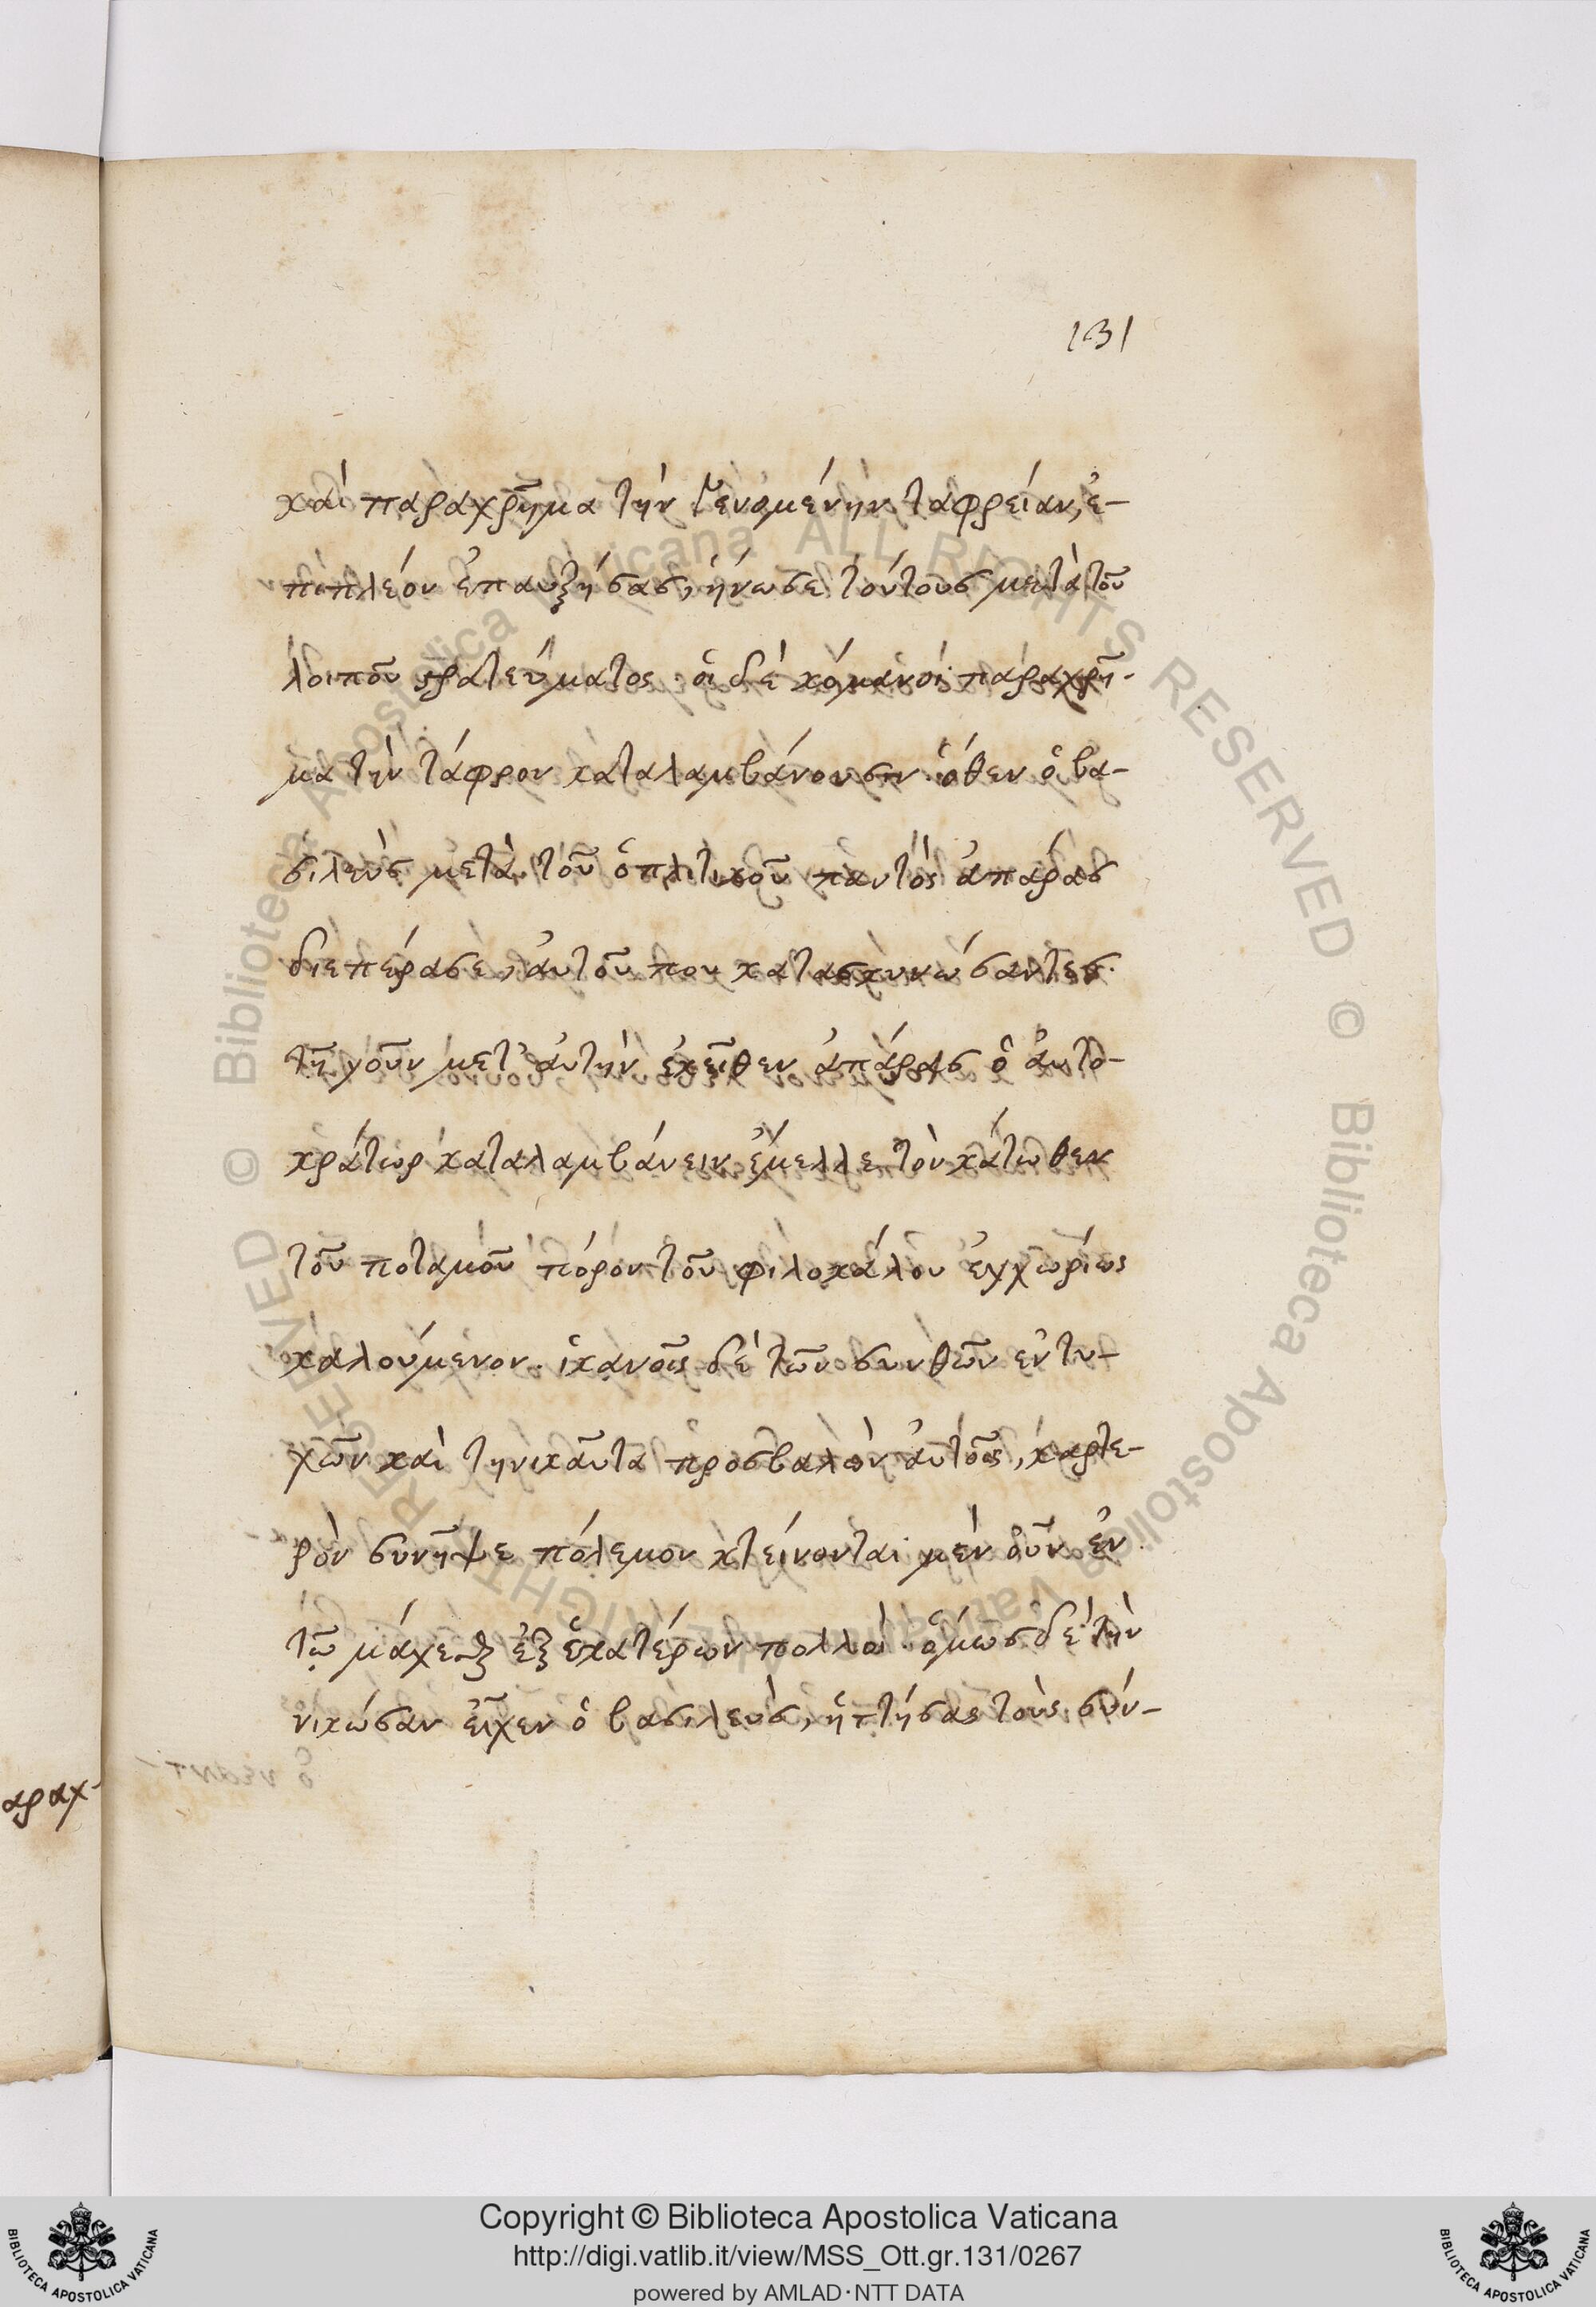 131
καὶ παραχρῆμα τὴν γενομένην ταφρείαν, ἐ-
πιπλεόν ἐπαυξήσας, ἥνωσε τούτους μετὰ τοῦ
λοιποῦ στρατεύματος. οἱ δὲ κόμανοι παραχρῆ-
μα τὴν τάφρον καταλαμβάνουσιν. ὅθεν ὁ βα-
σιλεὺς μετὰ τοῦ ὁπλιτικοῦ παντὸς ἀπάρας
διεπέρασε, αὐτοῦ που κατασκηνώσαντες.
τῇ γοῦν μετ' αὐτὴν ἐκεῖθεν ἀπάρας ὁ αὐτο-
κράτωρ καταλαμβάνειν ἔμελλε τὸν κάτωθεν
τοῦ ποταμοῦ πόρον τοῦ φιλοκάλου ἐγχωρίως
καλούμενον. ἱκανοῖς δὲ τῶν σκυθῶν ἐντυ-
χὼν καὶ τηνικαῦτα προσβαλὼν αὐτοῖς, καρτε-
ρὸν συνῆψε πόλεμον κτείνονται μὲν οὖν ἐν
τῷ μάχεσθαι ἐξ ἑκατέρων πολλοί. ὅμως δὲ τὴν
νικῶσαν εἶχεν ὁ βασιλεὺς, ἡττήσας τοὺς σύν-
αραχ-
Copyright © Biblioteca Apostolica Vaticana
http://digi.vatlib.it/view/MSS_Ott.gr.131/0267
powered by AMLAD·NTT DATA
BIBLIOTECA APOSTOLICA VATICANA
BIBLIOTECA APOSTOLICA VATICANA
© Biblioteca Apostolica Vaticana ALL RIGHTS RESERVED © Biblioteca Apostolica Vaticana ALL RIGHTS RESERVED